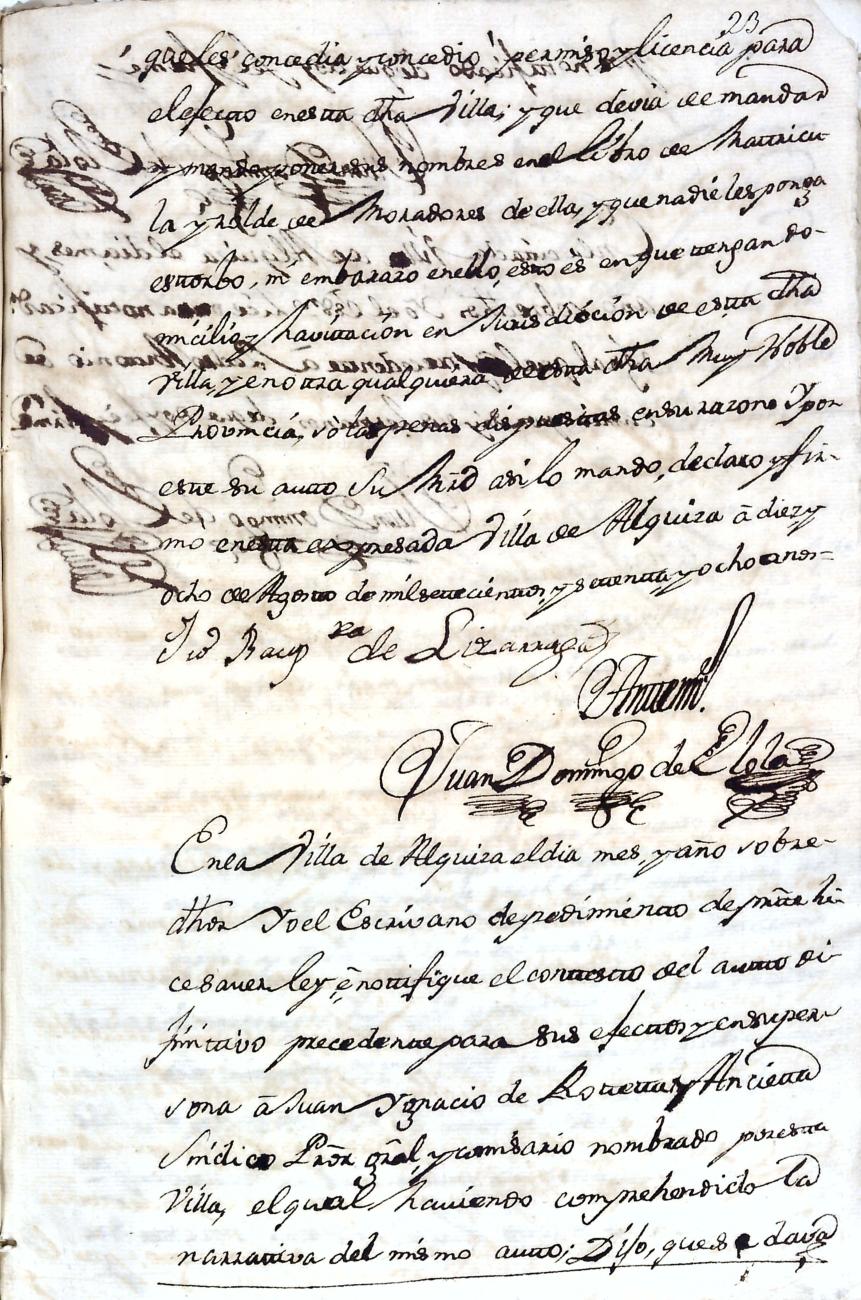 23
que les concedia y concedio permiso y licencia para
el efecto en esta dha Villa; y que devia de mandar
y mando poner sus nombres en el Libro de Matricu
la y rolde de Moradores de ella, y que nadie les ponga
estorbo, ni embarazo en ello, esto es en que tengan do-
micilio y havitación en Jurisdición de esta dha
Villa, y en otra qualquiera de esta dha Muy Noble
Provincia, so las penas dispuestas en su razon: Y por
este su auto Su Mrd asi lo mando, declaro y fir-
mo en esta expresada Villa de Alquiza â diez y
ocho de Agosto de mil setecientos, y setenta, y ocho anos-
de Lizarraga
Antemi
Juan Domingo de Elola
En la Villa de Alquiza el dia mes, y año sobre-
dhos Yo el Escrivano de pedimiento de parte hi-
ce saver ley ê notifique el contesto del auto di
finitivo precedente para sus efectos y en su per-
sona â Juan Ygnacio de Rotetta y Ancieta
Sindico Pror gral, y comisario nombrado por esta
Villa, el qual haviendo comprehendido la
narrativa del mismo auto; Dijo, que se dava